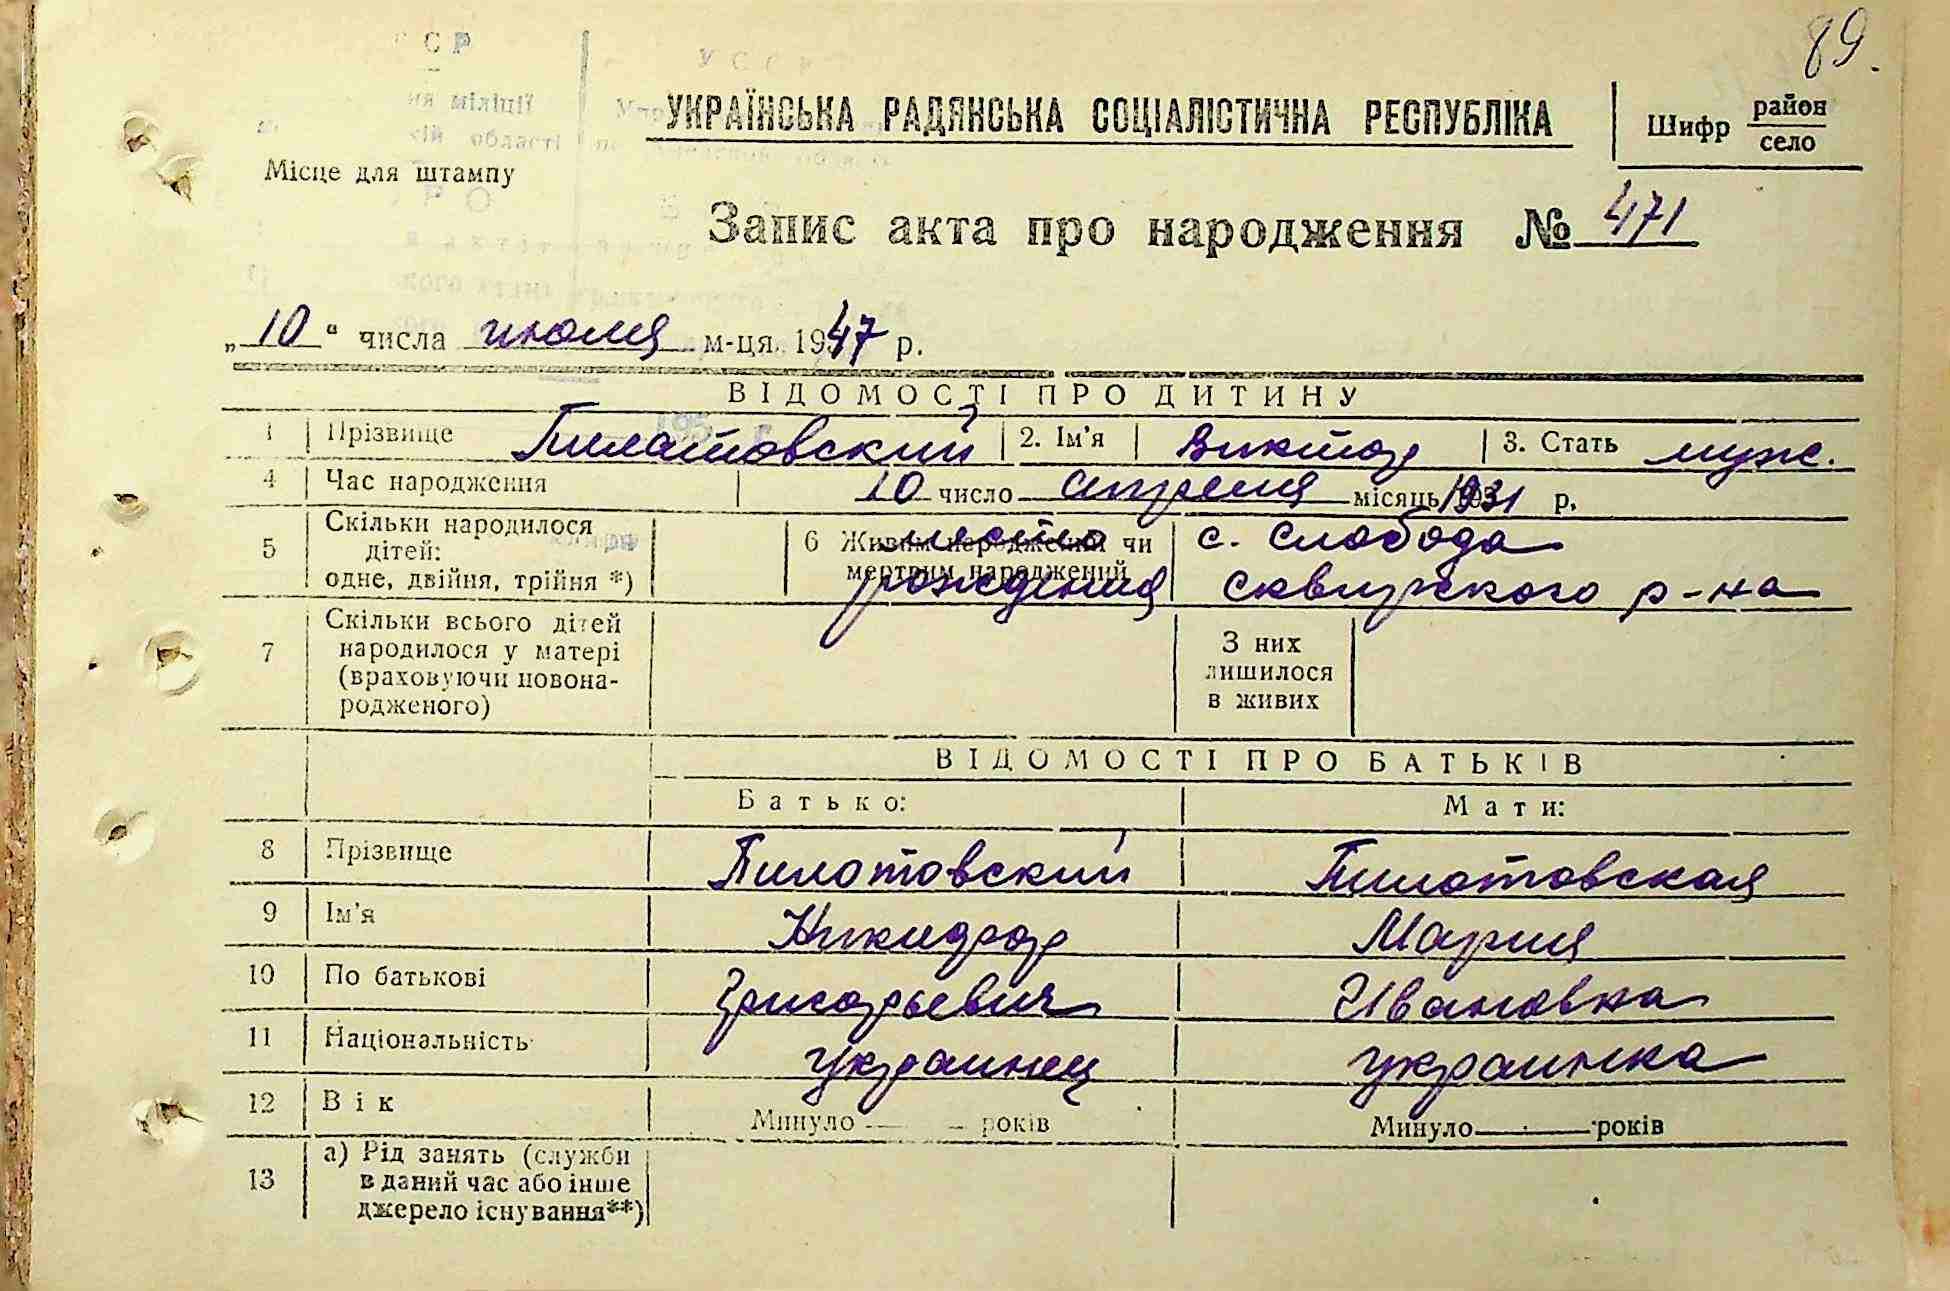 89.
УКРАЇНСЬКА РАДЯНСЬКА СОЦІАЛІСТИЧНА РЕСПУБЛІКА
Шифр район
село
Місце для штампу
Запис акта про народження № 471
„10“ числа июля м-ця 1947 р.
ВІДОМОСТІ ПРО ДИТИНУ
1 Прізвище Пилатовский 2. Ім'я Виктор 3. Стать муж.
4 Час народження 10 число апреля місяць 1931 р.
5 Скільки народилося дітей: одне, двійня, трійня *)
6 Живим народжений чи мертвим народжений
место рождения
с. Слобода
Сквирского р-на
7 Скільки всього дітей народилося у матері (враховуючи новона-
родженого)
З них лишилося в живих
ВІДОМОСТІ ПРО БАТЬКІВ
Батько: Мати:
8 Прізвище Пилотовский Пилотовская
9 Ім'я Никифор Мария
10 По батькові Григорьевич Ивановна
11 Національність украинец украинка
12 Вік Минуло — років Минуло — років
13 а) Рід занять (служби
в даний час або інше
джерело існування**)